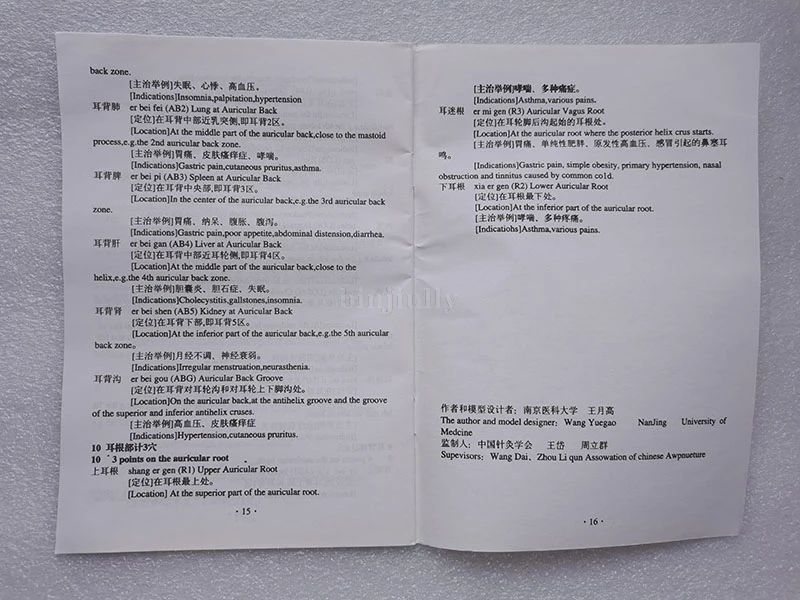 back zone.
[主治举例]失眠、心悸、高血压。
[Indications]Insomnia,palpitation,hypertension
耳背肺 er bei fei (AB2) Lung at Auricular Back
[定位]在耳背中部近乳突侧,即耳背2区。
[Location]At the middle part of the auricular back,close to the mastoid
process,e.g.the 2nd auricular back zone.
[主治举例]胃痛、皮肤瘙痒症、哮喘。
[Indications]Gastric pain,cutaneous pruritus,asthma.
耳背脾 er bei pi (AB3) Spleen at Auricular Back
[定位]在耳背中央部,即耳背3区。
[Location]In the center of the auricular back,e.g.the 3rd auricular back
zone.
[主治举例]胃痛、纳呆、腹胀、腹泻。
[Indications]Gastric pain,poor appetite,abdominal distension,diarrhea.
耳背肝 er bei gan (AB4) Liver at Auricular Back
[定位]在耳背中部近耳轮侧,即耳背4区。
[Location]At the middle part of the auricular back,close to the
helix,e.g.the 4th auricular back zone.
[主治举例]胆囊炎、胆石症、失眠。
[Indications]Cholecystitis,gallstones,insomnia.
耳背肾 er bei shen (AB5) Kidney at Auricular Back
[定位]在耳背下部,即耳背5区。
[Location]At the inferior part of the auricular back,e.g.the 5th auricular
back zone。
[主治举例]月经不调、神经衰弱。
[Indications]Irregular menstruation,neurasthenia.
耳背沟 er bei gou (ABG) Auricular Back Groove
[定位]在耳背对耳轮沟和对耳轮上下脚沟处。
[Location]On the auricular back,at the antihelix groove and the groove
of the superior and inferior antihelix cruses.
[主治举例]高血压、皮肤瘙痒症
[Indications]Hypertension,cutaneous pruritus.
10 耳根部计3穴
10 3 points on the auricular root
上耳根 shang er gen (R1) Upper Auricular Root
[定位]在耳根最上处。
[Location] At the superior part of the auricular root.
·15·
[主治举例]哮喘、多种痛症。
[Indications]Asthma,various pains.
耳迷根 er mi gen (R3) Auricular Vagus Root
[定位]在耳轮脚后沟起始的耳根处。
[Location]At the auricular root where the posterior helix crus starts.
[主治举例]胃痛、单纯性肥胖、原发性高血压、感冒引起的鼻塞耳
鸣。
[Indications]Gastric pain, simple obesity, primary hypertension, nasal
obstruction and tinnitus caused by common co1d.
下耳根 xia er gen (R2) Lower Auricular Root
[定位]在耳根最下处。
[Location]At the inferior part of the auricular root.
[主治举例]哮喘、多种疼痛。
[Indicatiohs]Asthma,various pains.
作者和模型设计者：南京医科大学 王月高
The author and model designer: Wang Yuegao NanJing University of
Medcine
监制人：中国针灸学会 王岱 周立群
Supevisors: Wang Dai、Zhou Li qun Assowation of chinese Awpnueture
·16·